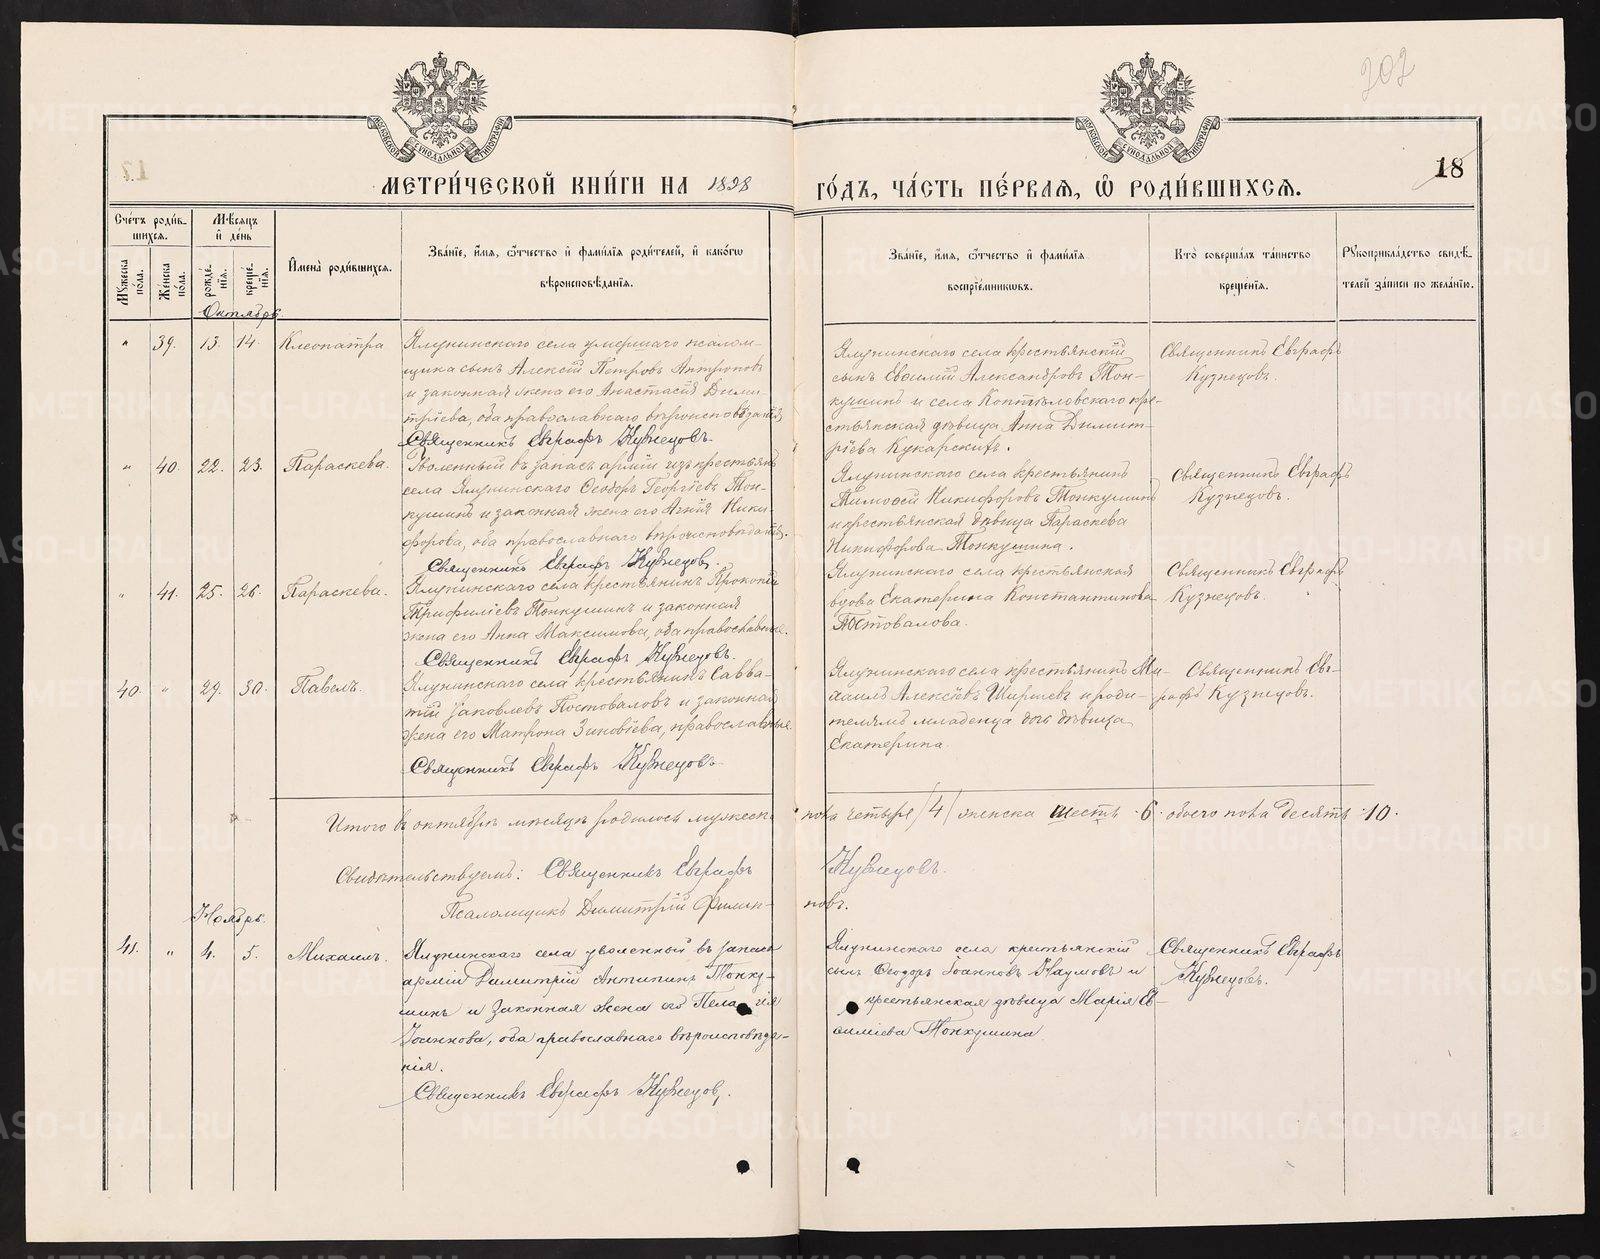 202
18
МЕТРИ́ЧЕСКОЙ КНИ́ГИ НА 1898 ГО́ДЪ, ЧА́СТЬ ПЕ́РВАѦ, Ѽ РОДИ́ВШИХСѦ.
Сче́тъ роди́в-
шихсѧ.
Му́жеска по́ла.
Же́нска по́ла.
Мѣ́сѧцъ и҆ де́нь
рожде́нїѧ.
креще́нїѧ.
И҆мена̀ роди́вшихсѧ.
Зва́нїе, и҆́мѧ, ѻ҆́тчество и҆ фами́лїѧ роди́телей, и҆ како́гѡ
вѣроисповѣ́данїѧ.
Зва́нїе, и҆́мѧ, ѻ҆́тчество и҆ фами́лїѧ
воспрїе́мникѡвъ.
Кто̀ соверша́лъ та́инство
креще́нїѧ.
Рꙋкоприкла́дство свидѣ́-
телей за́писи по жела́нїю.
Октябрь
" 39. 13. 14. Клеопатра
Ялунинскаго села умершаго псалом-
щика сынъ Алексій Петровъ Антроповъ
и законная жена его Анастасія Дими-
тріева, оба православнаго вѣроисповѣданія
Священникъ Евграфъ Кузнецовъ.
Ялунинскаго села крестьянскій
сынъ Василій Александровъ Тон-
кушинъ и села Коптѣловскаго кре-
стьянская дѣвица Анна Димит-
ріева Кукарскихъ.
Священникъ Евграфъ
Кузнецовъ.
" 40. 22. 23. Параскева.
Уволенный въ запасъ арміи изъ крестьянъ
села Ялунинскаго Ѳеодоръ Георгіевъ Тон-
кушинъ и законная жена его Агнія Ники-
форова, оба православнаго вѣроисповѣданія.
Священникъ Евграфъ Кузнецовъ.
Ялунинскаго села крестьянинъ
Тимоѳей Никифоровъ Тонкушинъ
и крестьянская дѣвица Параскева
Никифорова Тонкушина.
Священникъ Евграфъ
Кузнецовъ.
" 41. 25. 26. Параскева.
Ялунинскаго села крестьянинъ Прокопій
Трифиліевъ Тонкушинъ и законная
жена его Анна Максимова, оба православные.
Священникъ Евграфъ Кузнецовъ.
Ялунинскаго села крестьянская
вдова Екатерина Константинова
Постовалова.
Священникъ Евграфъ
Кузнецовъ.
40. " 29. 30. Павелъ.
Ялунинскаго села крестьянинъ Савва-
тій Іаковлевъ Постоваловъ и законная
жена его Матрона Зиновіева, православные
Священникъ Евграфъ Кузнецовъ
Ялунинскаго села крестьянинъ Ми-
хаилъ Алексѣевъ Ширшевъ и роди-
телямъ младенца дочь дѣвица
Екатерина.
Священникъ Ев-
графъ Кузнецовъ.
Итого въ октябрѣ мѣсяцѣ родилось мужеск. пола четыре /4/ женска шесть ·6· обоего пола десять ·10·
Свидѣтельствуемъ: Священникъ Евграфъ Кузнецовъ.
Псаломщикъ Димитрій Филип-повъ.
Ноябрь.
41. " 4. 5. Михаилъ.
Ялунинскаго села уволенный въ запасъ
арміи Димитрій Антипинъ Тонку-
шинъ и законная жена его Пелагія
Іоаннова, оба православнаго вѣроисповѣда-
нія.
Священникъ Евграфъ Кузнецовъ.
Ялунинскаго села крестьянскій
сынъ Ѳеодоръ Іоанновъ Наумовъ и
крестьянская дѣвица Марія Ев-
симіева Тонкушина
Священникъ Евграфъ
Кузнецовъ.
METRIKI.GASO-URAL.RU